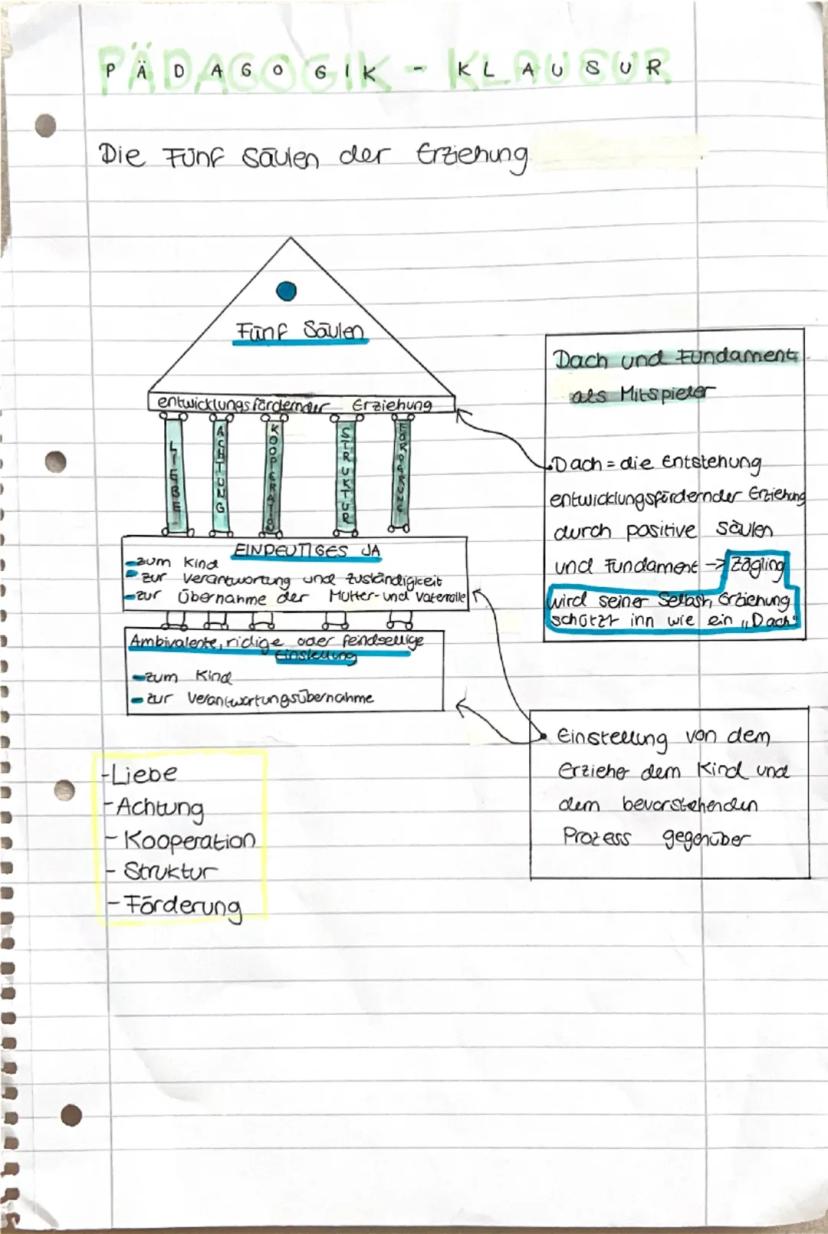 PÄDAGOGIK - KLAUSUR
Die Fünf Säulen der Erziehung
Fünf Säulen
entwicklungsfördernder Erziehung
LIEBE
ACHTUNG
KOOPERATIO
STRUKTUR
FÖRDERUNG
EINDEUTIGES JA
- zum Kind
- zur Verantwortung und Zuständigkeit
- zur Übernahme der Mutter- und Vaterrolle
Ambivalente, ridige oder feindseelige
Einstellung
- zum Kind
- zur Verantwortungsübernahme
- Liebe
- Achtung
- Kooperation
- Struktur
- Förderung
Dach und Fundament
als Mitspieler
Dach = die Entstehung
entwicklungsfördernder Erziehung
durch positive Säulen
und Fundament → Zögling
wird seiner Selbst, Erziehung
schützt inn wie ein „Dach"
Einstellung von dem
Erzieher dem Kind und
dem bevorstehenden
Prozess gegenüber